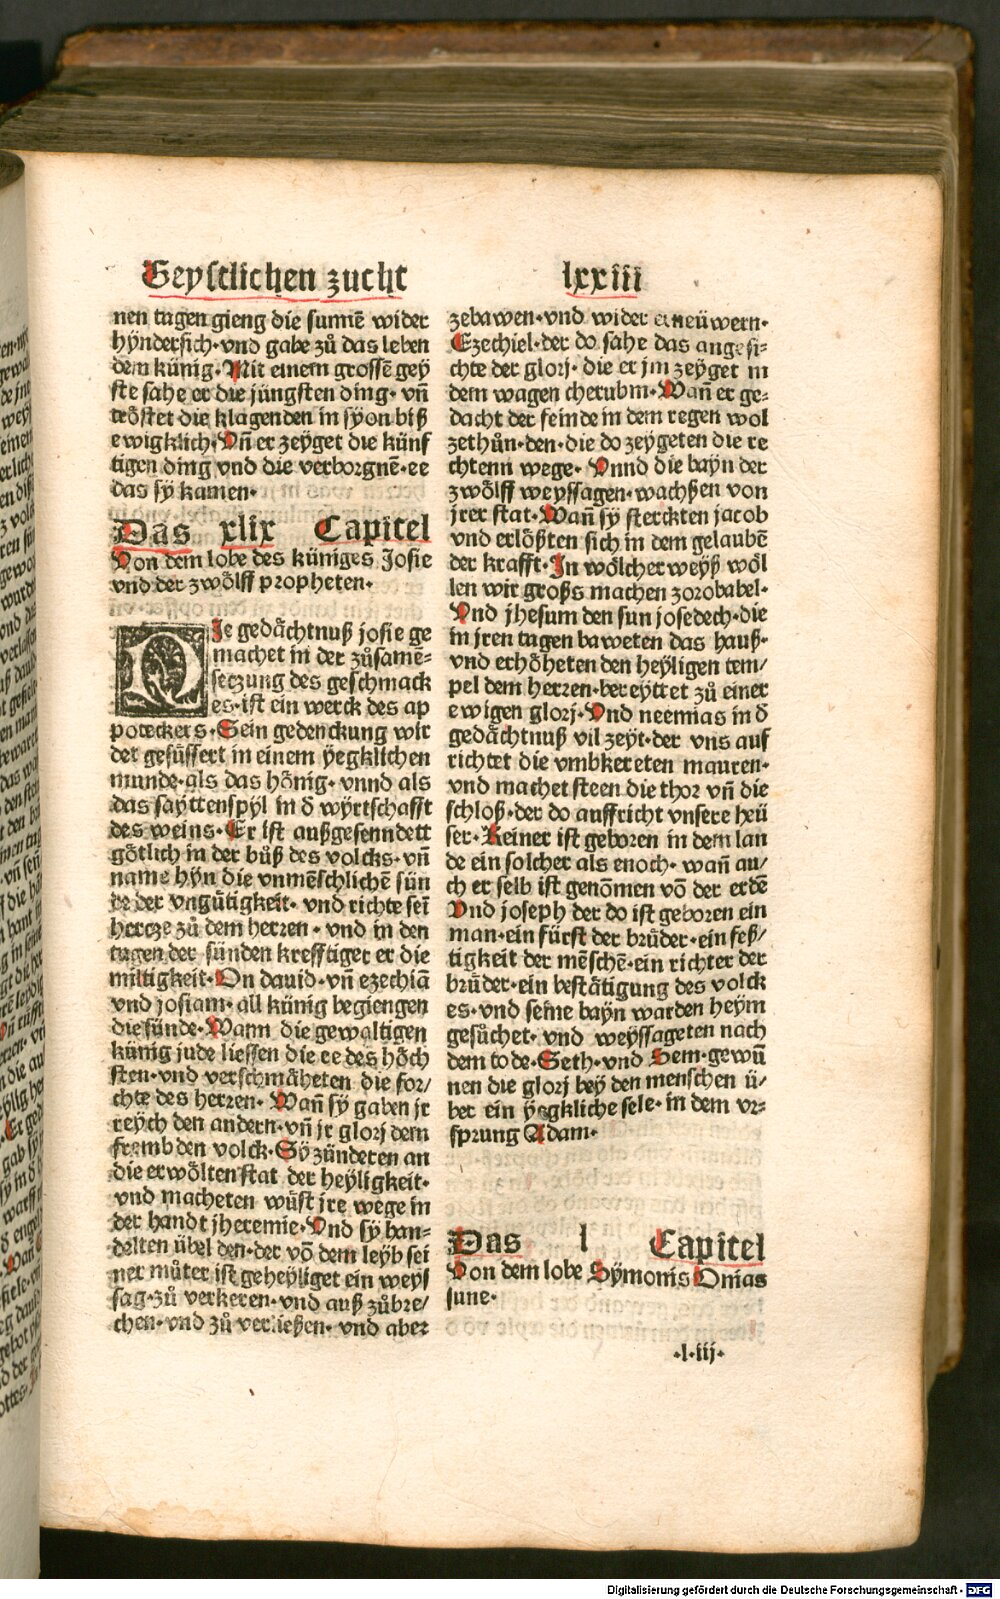 Geystlichen zucht
lxxiii
nen tagen gieng die sunnē wider
hyndersich·vnd gabe zů das leben
dem künig·Mit einem grossē gey
ste sahe er die jüngsten ding· vn̄
tröstet die klagenden in syon biß
ewigklich·Vn̄ er zeyget die künf
tigen ding vnd die verborgnē·ee
das sy kamen·
Das xlix Capitel
Von dem lobe des küniges Josie
vnd der zwölff propheten·
DIe gedächtnuß josie ge
machet in der zůsamē⸗
seczung des geschmack
es·ist ein werck des ap
poteckers·Sein gedenckung wir
der gesüssert in einem yegklichen
munde·als das hönig·vnnd als
das sayttenspyl in d̄ wyrtschafft
des weins·Er ist außgesenndett
götlich in der bůß des volcks·vn̄
name hyn die vnmēschlichē sün
de der vngütigkeit· vnd richte sei̅
hercze zů dem herren·vnd in den
tagen der sünden krefftiget er die
miltigkeit·On dauid·vn̄ ezechiā
vnd josiam·all künig begiengen
die sünde·Wann die gewaltigen
künig jude liessen die ee des höch
sten·vnd verschmäheten die for/
chte des herren·Wan̄ sy gaben jr
reych den andern·vn̄ jr glorj dem
frembden volck·Sy zündeten an
die erwölten stat der heyligkeit·
vnd macheten wüst jre wege in
der handt jheremie·Vnd sy han⸗
delten übel den·der vō dem leyb sei
ner můter ist geheyliget ein weys
sag·zů verkeren·vnd auß zůbre/
chen·vnd zů verließen·vnd aber
zebawen·vnd wider erneüwern·
Ezechiel·der do sahe das angesi⸗
chte der glorj· die er jm zeyget in
dem wagen cherubin·Wan̄ er ge⸗
dacht der feinde in dem regen wol
zethůn·den·die do zeygeten die re
chtenn wege· Vnnd die bayn der
zwölff weyssagen·wachßen von
jrer stat·Wan̄ sy sterckten jacob
vnd erlößten sich in dem gelaubē
der krafft·In wölcher weyß wöl
len wir groß machen zorobabel·
Vnd jhesum den sun josedech·die
in jren tagen baweten das hauß·
vnd erhöheten den heyligen tem/
pel dem herren·bereyttet zů einer
ewigen glorj·Vnd neemias in d̄
gedächtnuß vil zeyt·der vns auf
richtet die vmbkereten mauren·
vnd machet steen die thor vn̄ die
schloß·der do auffricht vnsere heü
ser·Keiner ist geboren in dem lan
de ein solcher als enoch· wan̄ au/
ch er selb ist genōmen vō der erdē
Vnd joseph der do ist geboren ein
man·ein fürst der brůder·ein feß/
tigkeit der mēschē·ein richter der
brůder·ein bestätigung des volck
es·vnd seine bayn warden heym
gesůchet· vnd weyssageten nach
dem tode·Seth·vnd Sem·gewū
nen die glorj bey den menschen ü⸗
ber ein yegkliche sele·in dem vr⸗
sprung Adam·
Das l Capitel
Von dem lobe Symonis Onias
sune·
·l·iij·
Digitalisierung gefördert durch die Deutsche Forschungsgemeinschaft - DFG